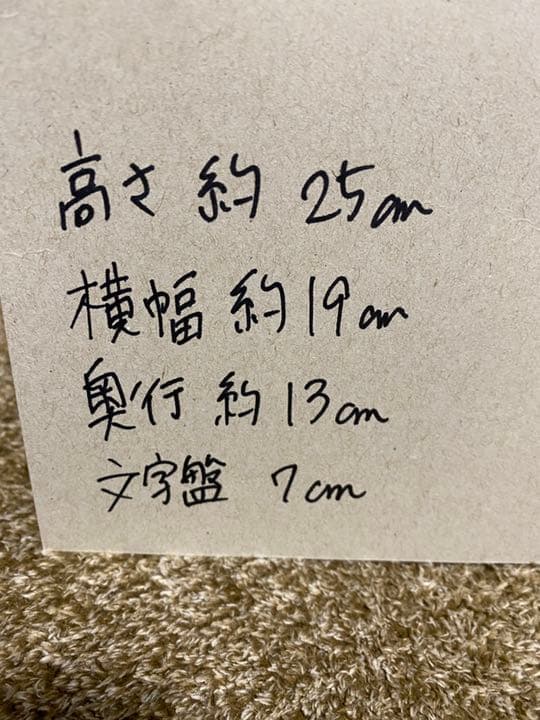 高さ 約 25cm
横幅 約 19cm
奥行 約 13cm
文字盤 7cm